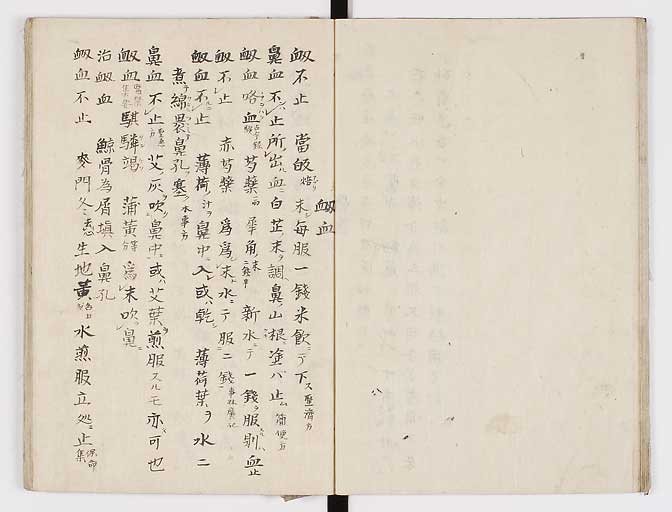 衂血
衂不止 當皈焙末毎服一錢米飲ニテ下ス聖濟方
鼻血不止所出血ニ白芷末ヲ調鼻山根ニ塗バ止ム簡便方
衂血咯血 芎藥一両 犀角末二錢半 新水ニテ一錢ヲ服則血止
衂不止 赤芍藥 為末水ニテ服二錢事林廣記
衂血不止 薄荷ノ汁ヲ鼻中ニ入ル或ハ乾薄荷葉ヲ水ニ
煮綿裹鼻孔ヲ塞ク本事方
鼻血不止 艾灰ヲ吹鼻中ニ或ハ艾葉煎服スルモ亦可也
衂血 騏驎竭 蒲黄等分 為末吹鼻ニ
治衂血 鯨骨為屑填入鼻孔
衂血不止 麥門冬去心 生地黄 水煎服立処ニ止保命集